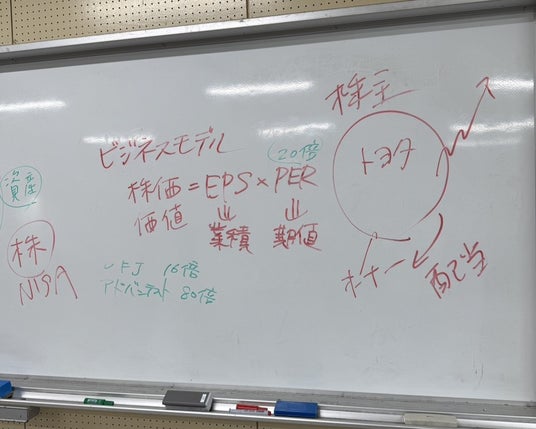 資産
株
NISA
ビジネスモデル
20倍
株価 = EPS × PER
価値 業績 期値
UFJ 16倍
アドバンテスト 80倍
株主
トヨタ
オーナー
配当